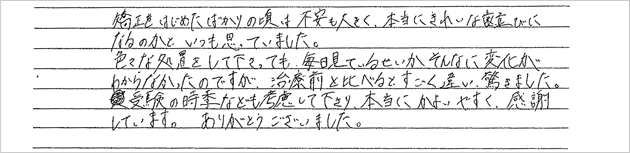 矯正をはじめたばかりの頃は不安も大きく、本当にきれいな歯並びに
なるのかといつも思っていました。
色々な処置をして下さっても、毎日見ているせいかそんなに変化が
わからなかったのですが、治療前と比べるとすごく違い、驚きました。
受験の時季なども考慮して下さり、本当にかよいやすく、感謝
しています。 ありがとうございました。